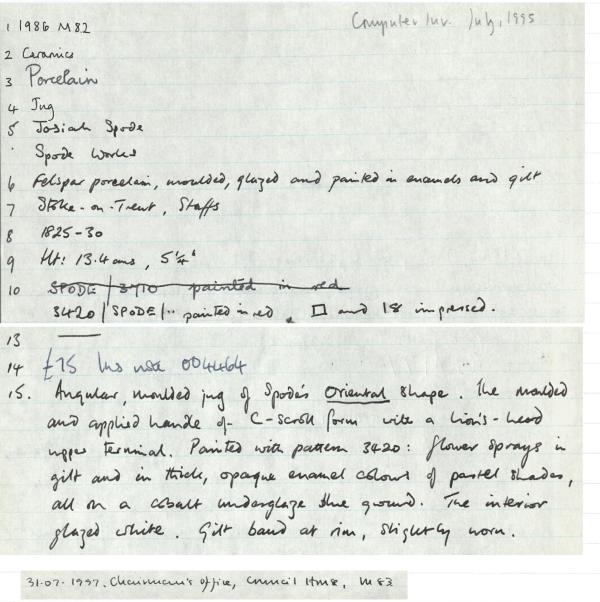 Computer Inv. July, 1995
1 1986 M82
2 Ceramics
3 Porcelain
4 Jug
5 Josiah Spode
Spode Works
6 Felspar porcelain, moulded, glazed and painted in enamels and gilt
7 Stoke-on-Trent, Staffs
8 1825-30
9 Ht: 13.4 cms, 5¼"
10 SPODE / 3710 painted in red
3420 / SPODE / ·· painted in red, □ and 18 impressed.
13 —
14 £75 Ins 004464
15. Angular, moulded jug of Spode's Oriental shape. The moulded
and applied handle of C-scroll form with a lion's-head
upper terminal. Painted with pattern 3420: flower sprays in
gilt and in thick, opaque enamel colours of pastel shades,
all on a cobalt underglaze blue ground. The interior
glazed white. Gilt band at rim, slightly worn.
31-07-1997. Chairman's office, Council M83